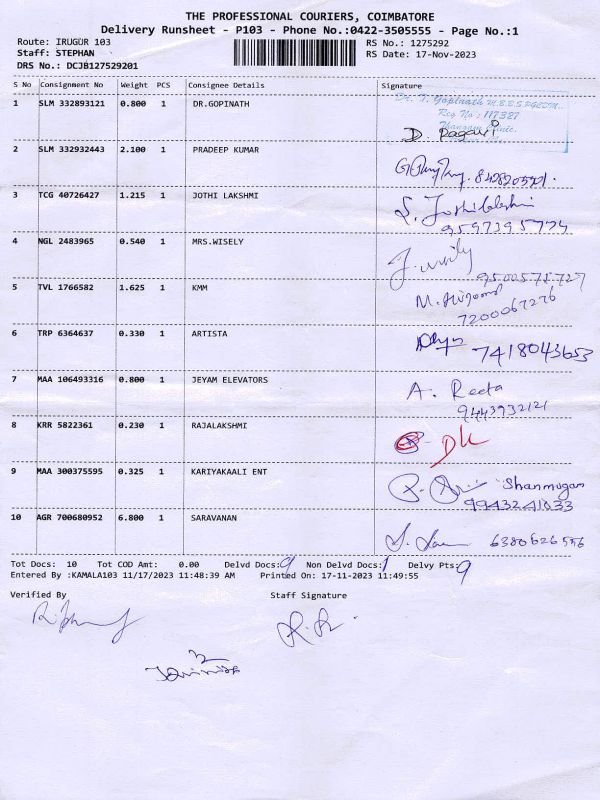 THE PROFESSIONAL COURIERS, COIMBATORE
Delivery Runsheet - P103 - Phone No.:0422-3505555 - Page No.:1
Route: IRUGUR 103 RS No.: 1275292
Staff: STEPHAN RS Date: 17-Nov-2023
DRS No.: DCJB127529201
S No Consignment No Weight PCS Consignee Details Signature
1 SLM 332893121 0.800 1 DR.GOPINATH
Dr. T. Gopinath M.B.B.S.
Reg No : 117387
D.
2 SLM 332932443 2.100 1 PRADEEP KUMAR
3 TCG 40726427 1.215 1 JOTHI LAKSHMI
S. Jothilakshmi
9597395774
4 NGL 2483965 0.540 1 MRS.WISELY
5 TVL 1766582 1.625 1 KMM
7200067276
6 TRP 6364637 0.330 1 ARTISTA
7418043653
7 MAA 106493316 0.800 1 JEYAM ELEVATORS
A. Reeta
9443932121
8 KRR 5822361 0.230 1 RAJALAKSHMI
DL
9 MAA 300375595 0.325 1 KARIYAKAALI ENT
Shanmugan
9943241033
10 AGR 700680952 6.800 1 SARAVANAN
6380626556
Tot Docs: 10 Tot COD Amt: 0.00 Delvd Docs: 9 Non Delvd Docs: 1 Delvy Pts: 9
Entered By :KAMALA103 11/17/2023 11:48:39 AM Printed On: 17-11-2023 11:49:55
Verified By Staff Signature